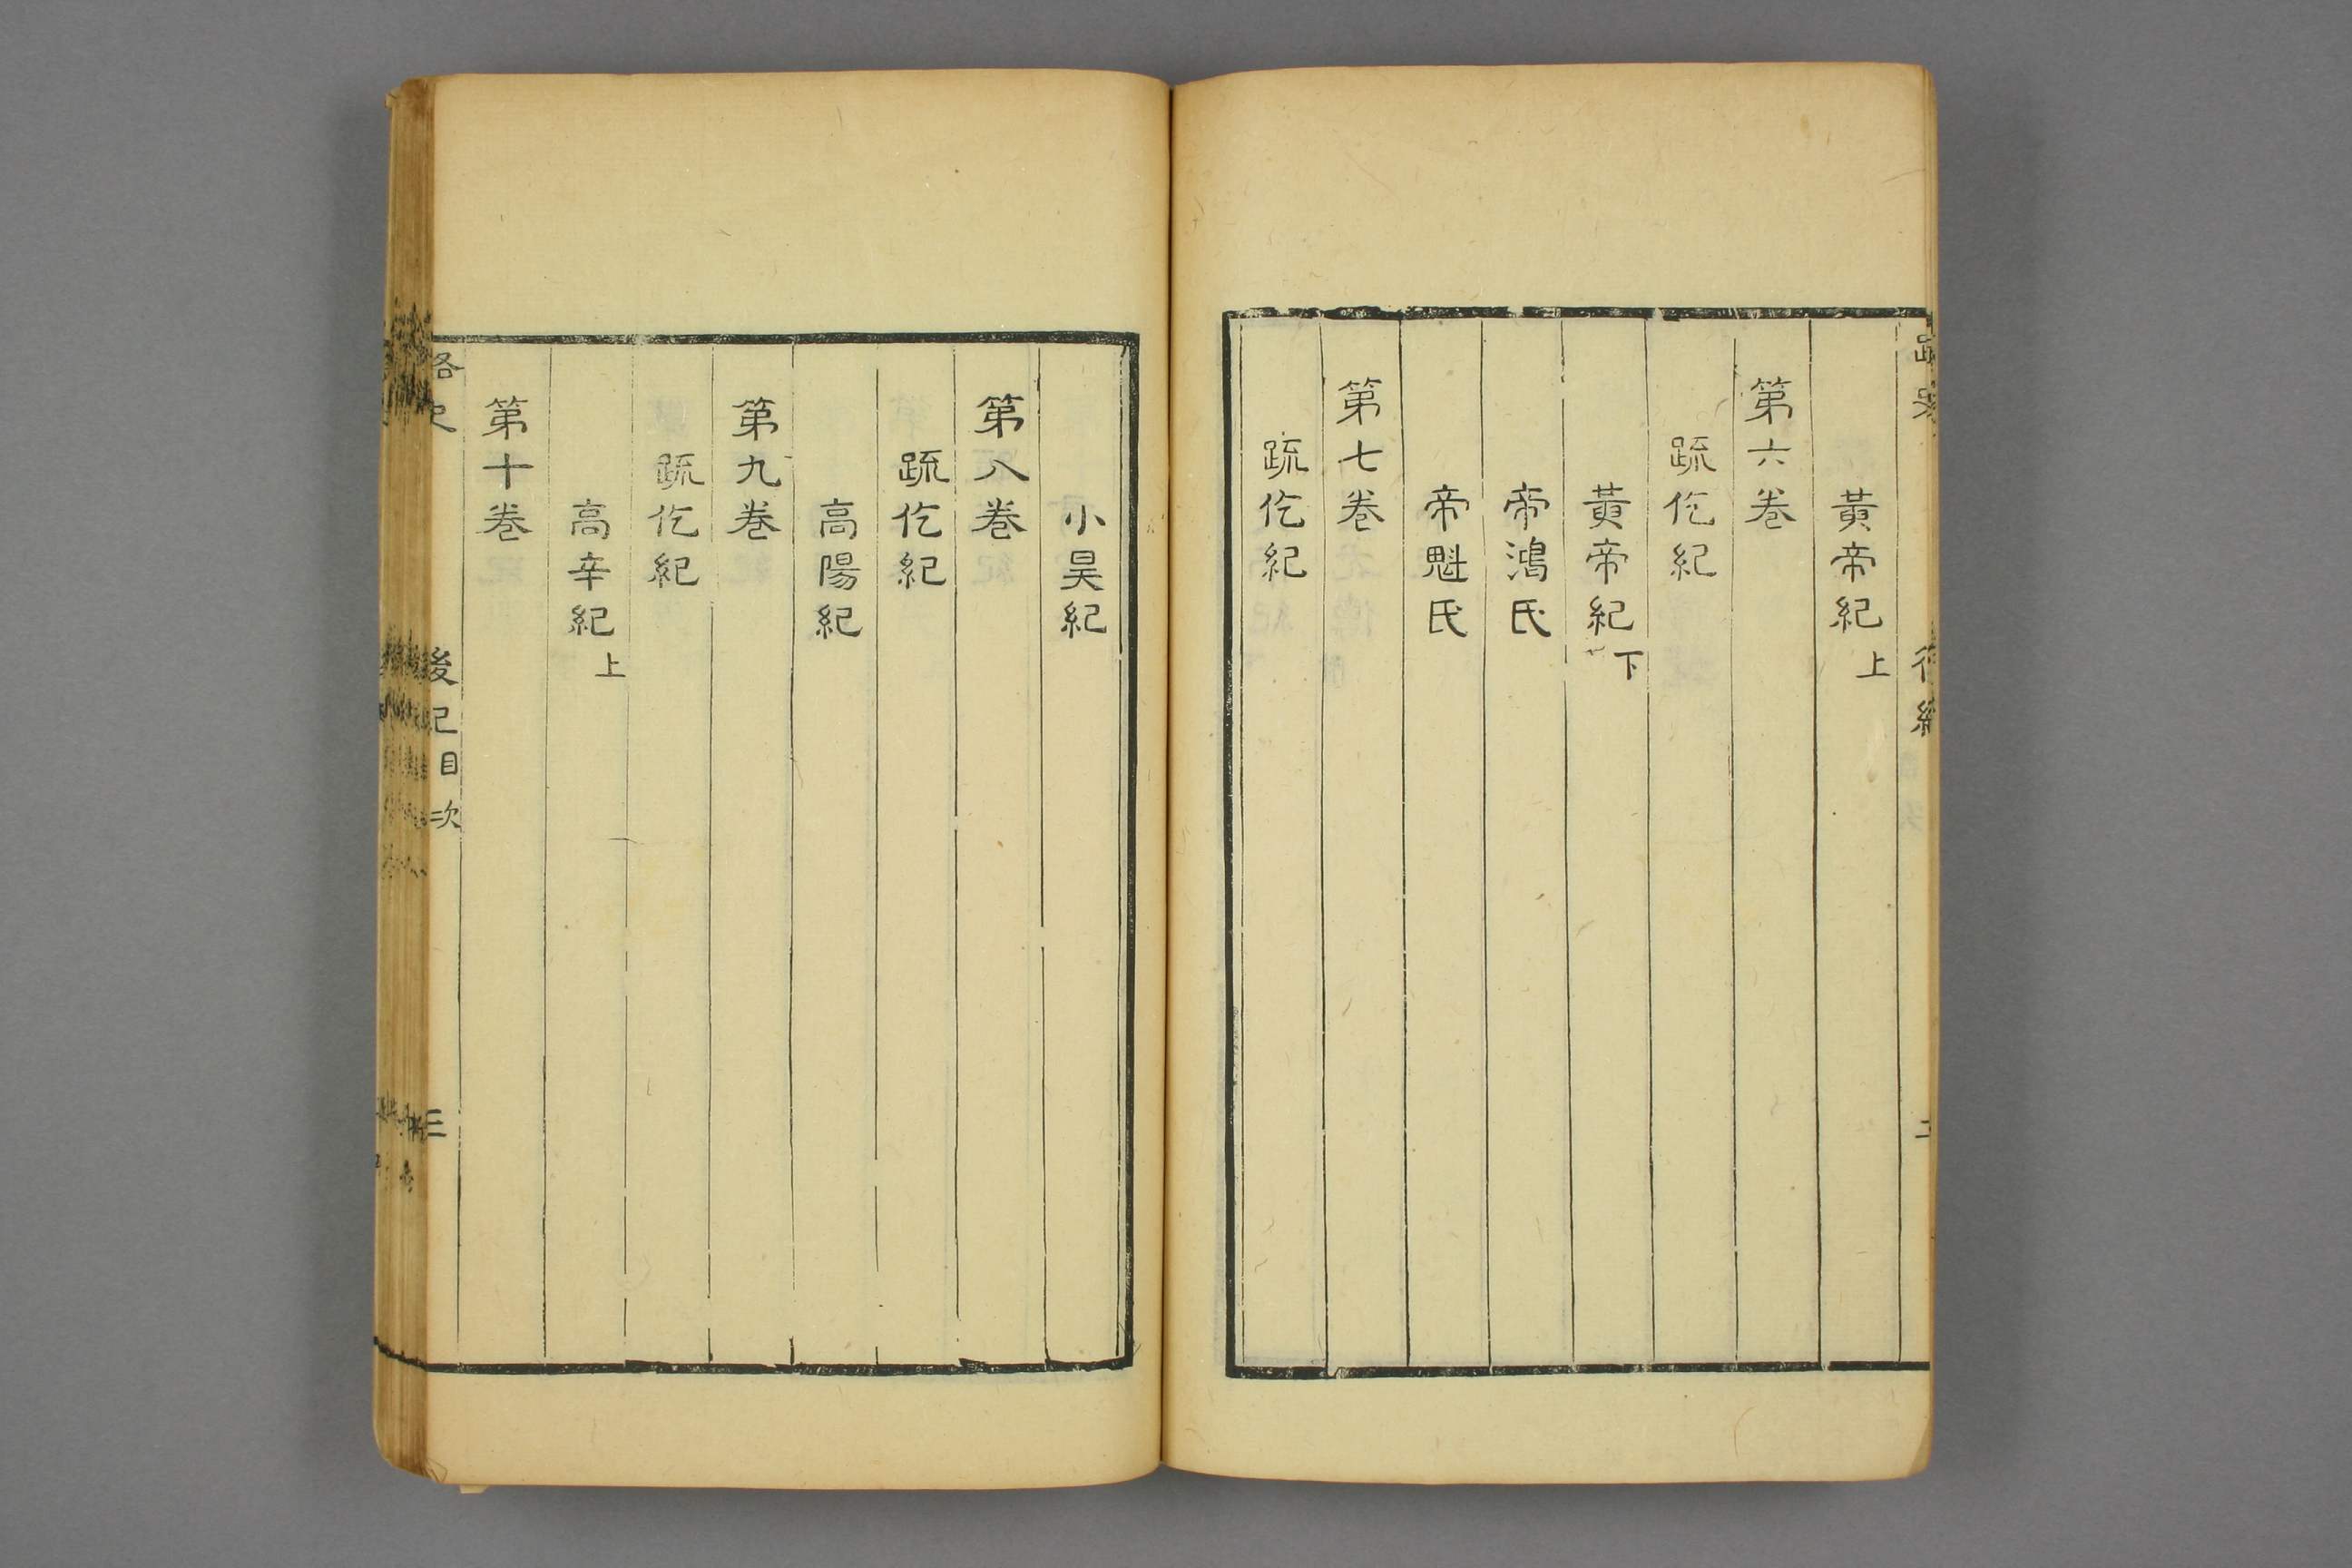 黃帝紀上
第六卷
疏仡紀
黃帝紀下
帝鴻氏
帝魁氏
第七卷
疏仡紀
小昊紀
第八卷
疏仡紀
高陽紀
第九卷
疏仡紀
高辛紀上
第十卷
路史 後紀目次 三